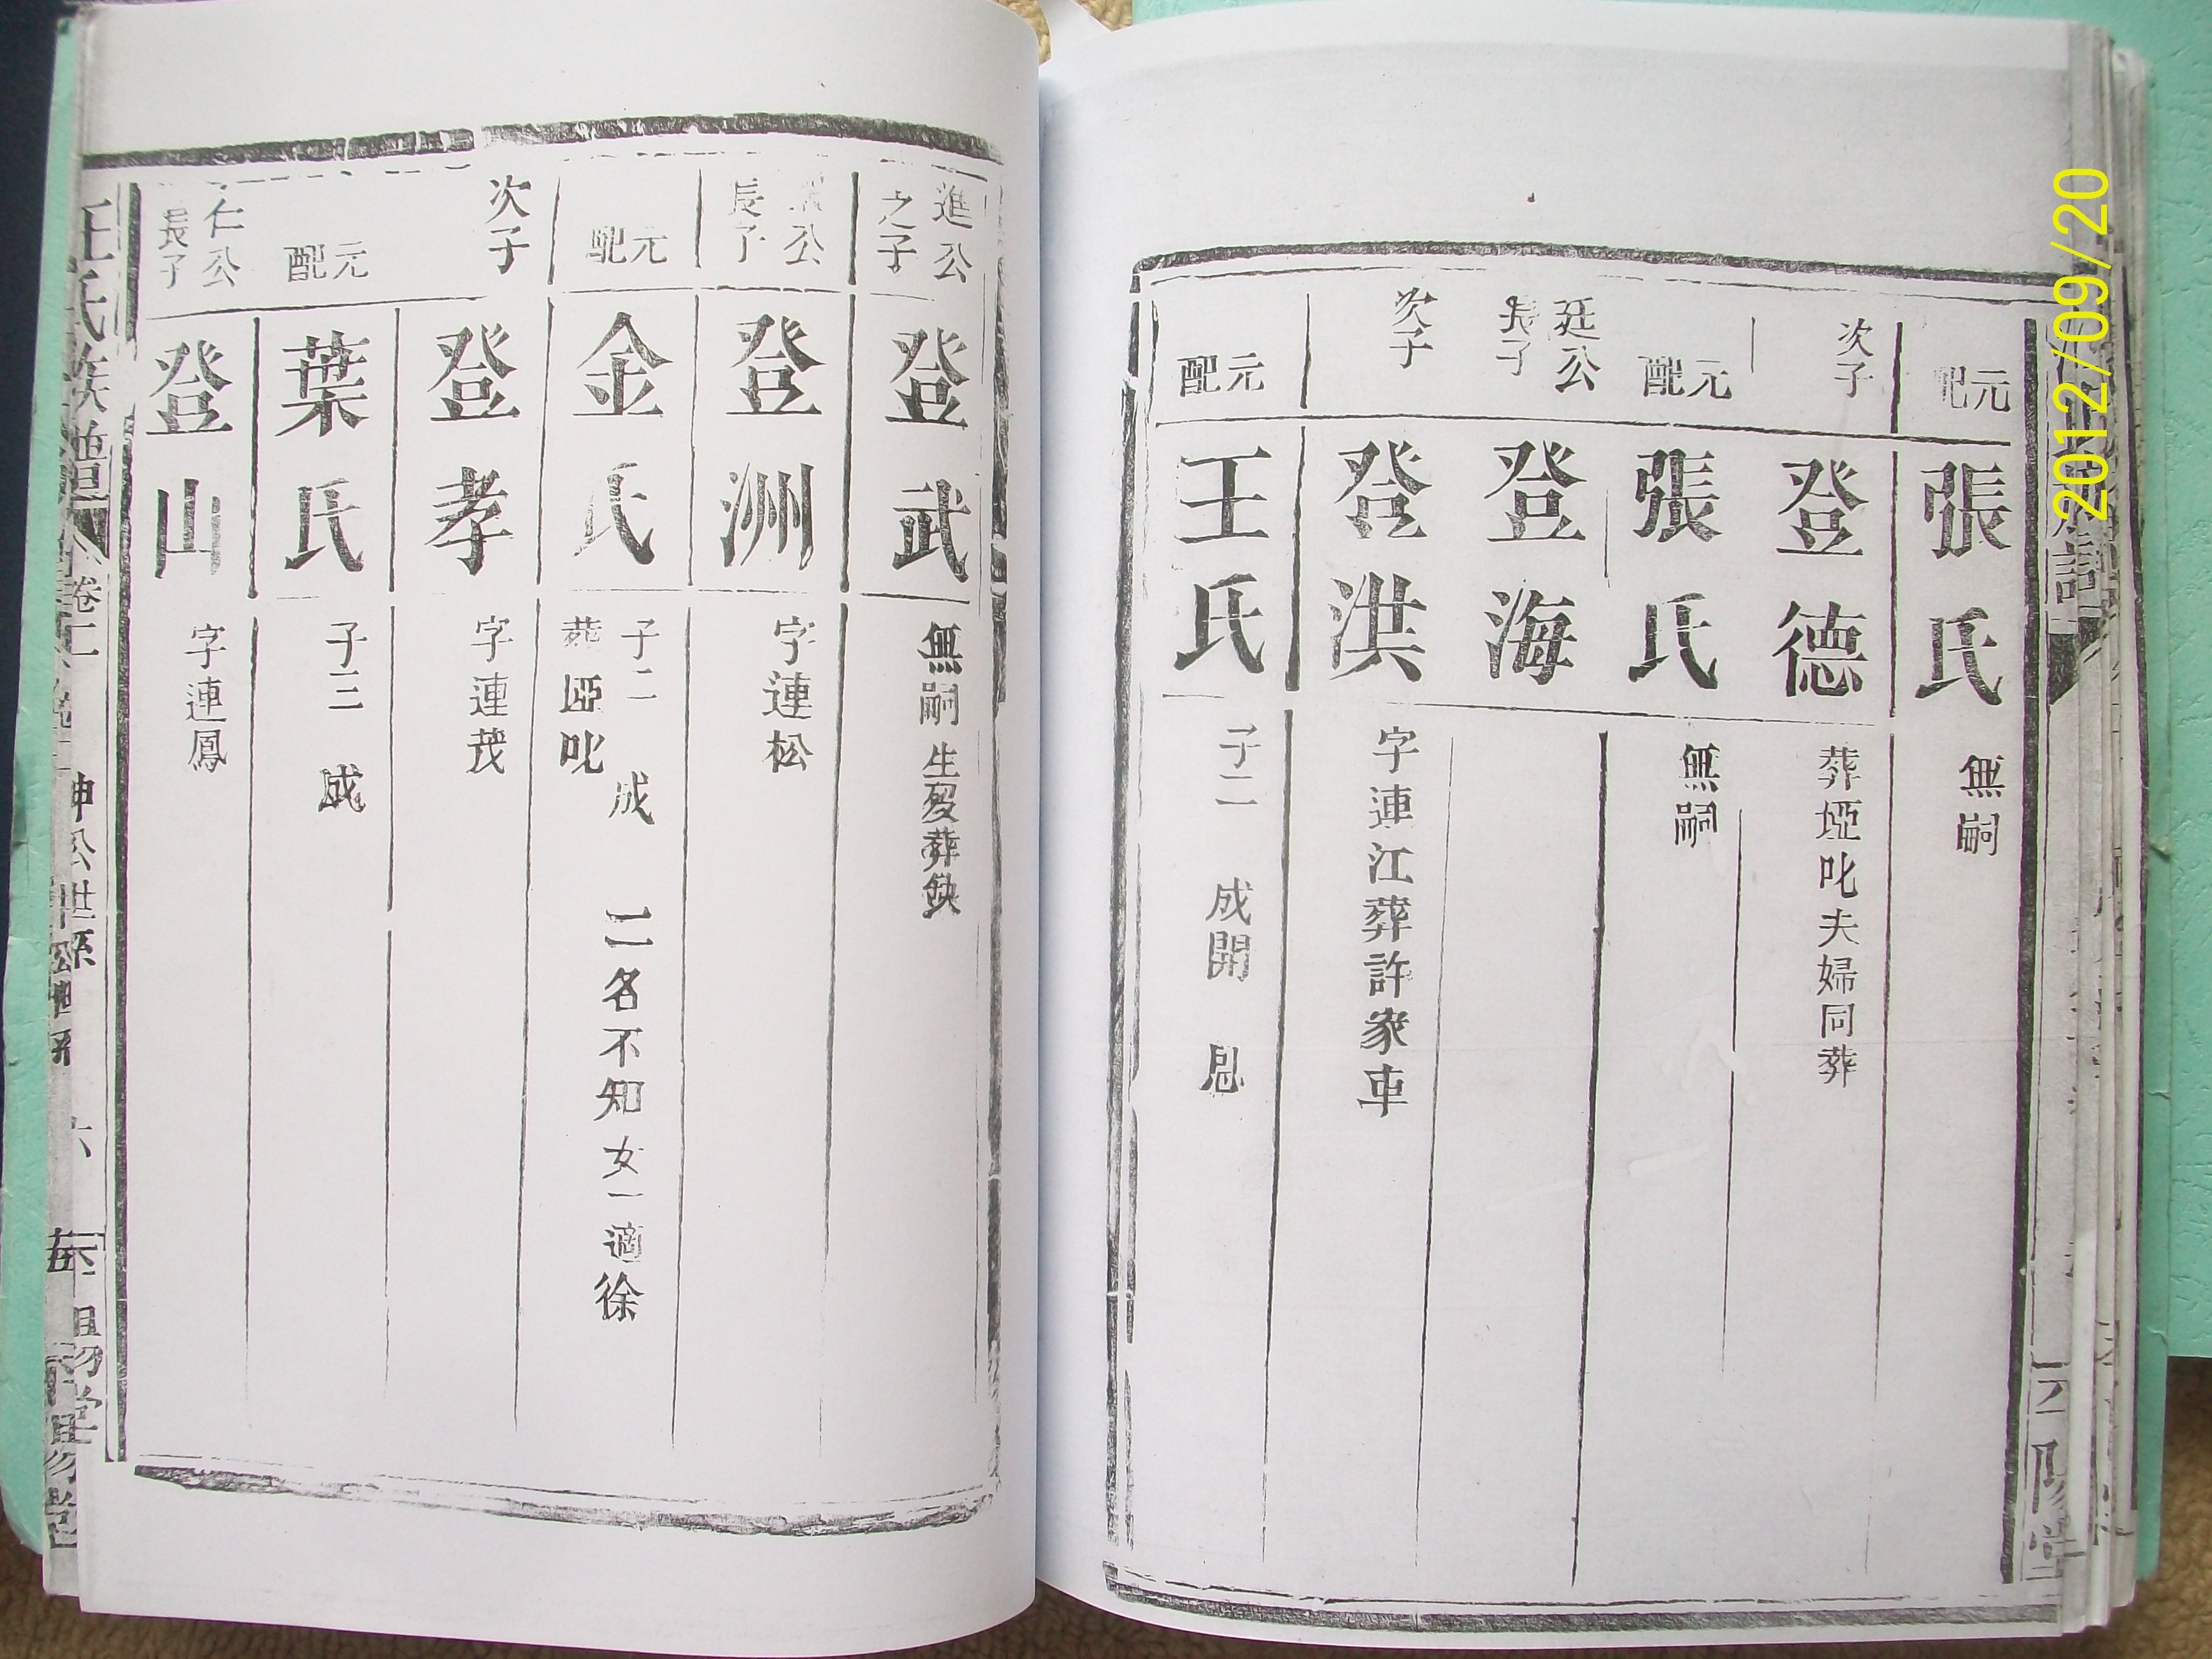 元配
張氏
無嗣
次子
登德
葬埡叱夫婦同葬
元配
張氏
無嗣
廷公
長子
登海
次子
登洪
字連江葬許家車
元配
王氏
子二 成開 恩
進公
之子
登武
無嗣 生歿葬缺
公
長子
登洲
字連松
元配
金氏
子二 成 二名不知女一適徐
葬埡叱
次子
登孝
字連茂
元配
葉氏
子三 成
仁公
長子
登山
字連鳳
氏族譜
卷二
公世系
六
2012/09/20